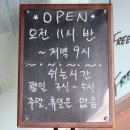 *OPEN*
오전 11시 반
~ 저녁 9시
쉬는시간
평일 3시 ~ 5시
주말, 휴일은 없음
FREE